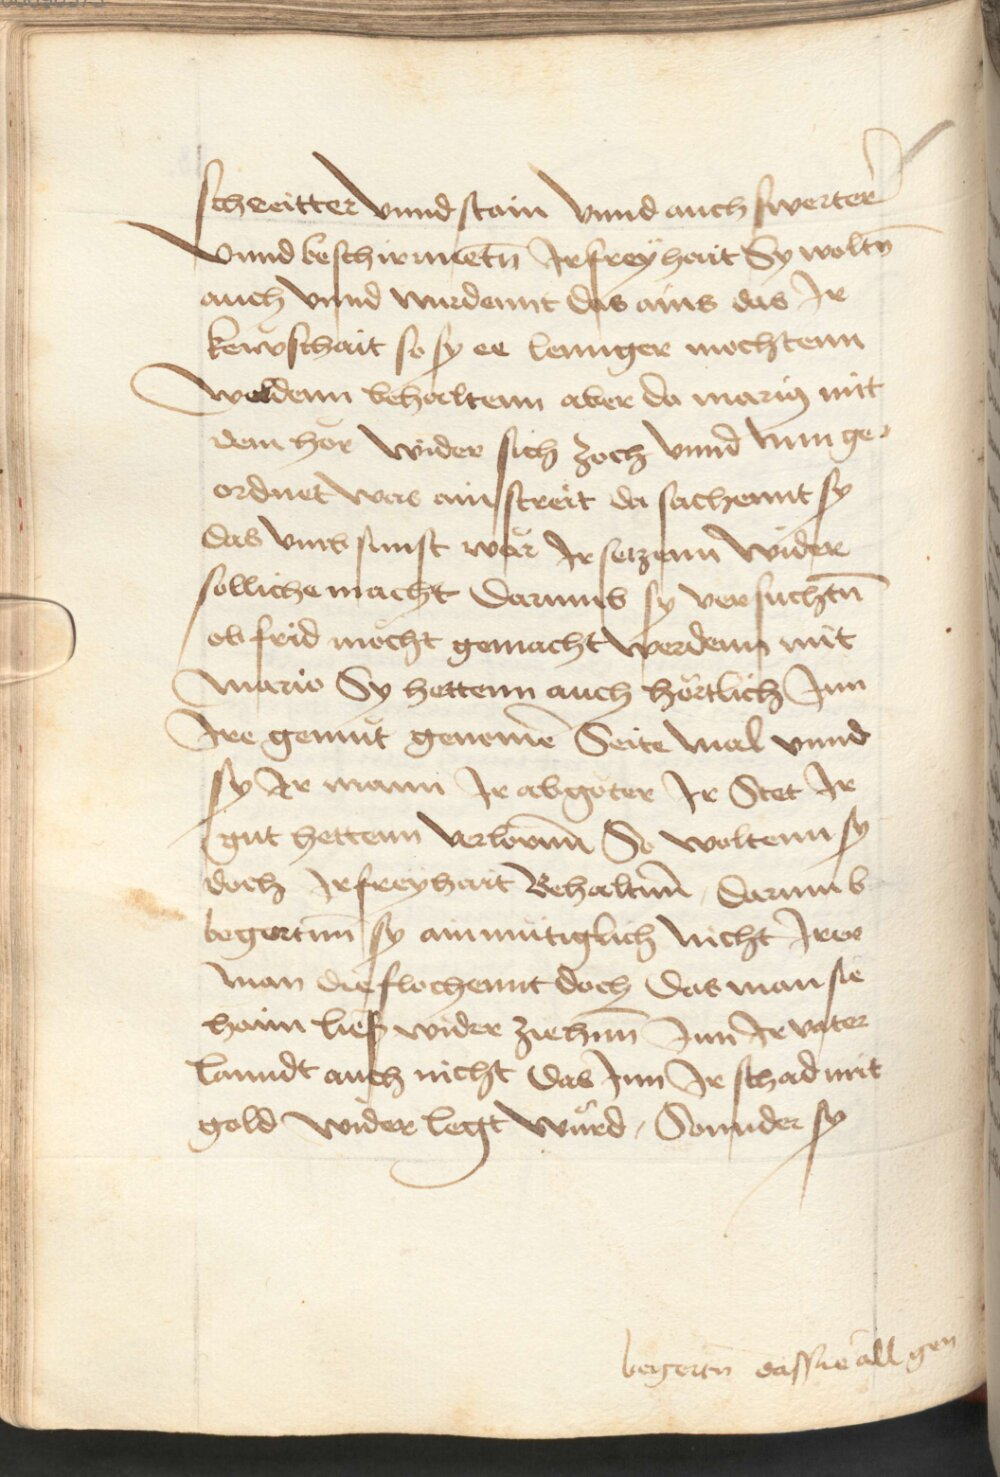 scheitter vnnd stain vnnd auch swerter
vnnd beschirmetn̄ Ir freyhait Sy woltn̄
auch vnnd wurdennt das ains das Ir
kewschait so sy ee lennger mochtenn
woldenn behaltenn aber da mariꝯ mit
dem hör wider sich zoch vnnd nun ge-
ordnet was ain streit da sachennt sy
das vmb sunst wär Ir setzenn wider
solliche macht Darumb sy versuchtn̄
ob frid möcht gemacht werdenn mit
Mario Sy hettenn auch hörtlich Inn
Ire gemüt genomē Seite mal vnnd
sy Ir mann Ir abgöter Ir Stet Ir
gut hettenn verlornn̄ So woltenn sy
doch Ir freyhait Behaltnn̄ Darumb
begertnn̄ sy ainmütiglich nicht Irer
man die flochennt doch das man sie
haim ließ wider ziehnn̄ Inn Ir vater
lanndt auch nicht das Inn Ir schad mit
gold wider legt würd / Sonnder sy
begertn̄ das sie all gen